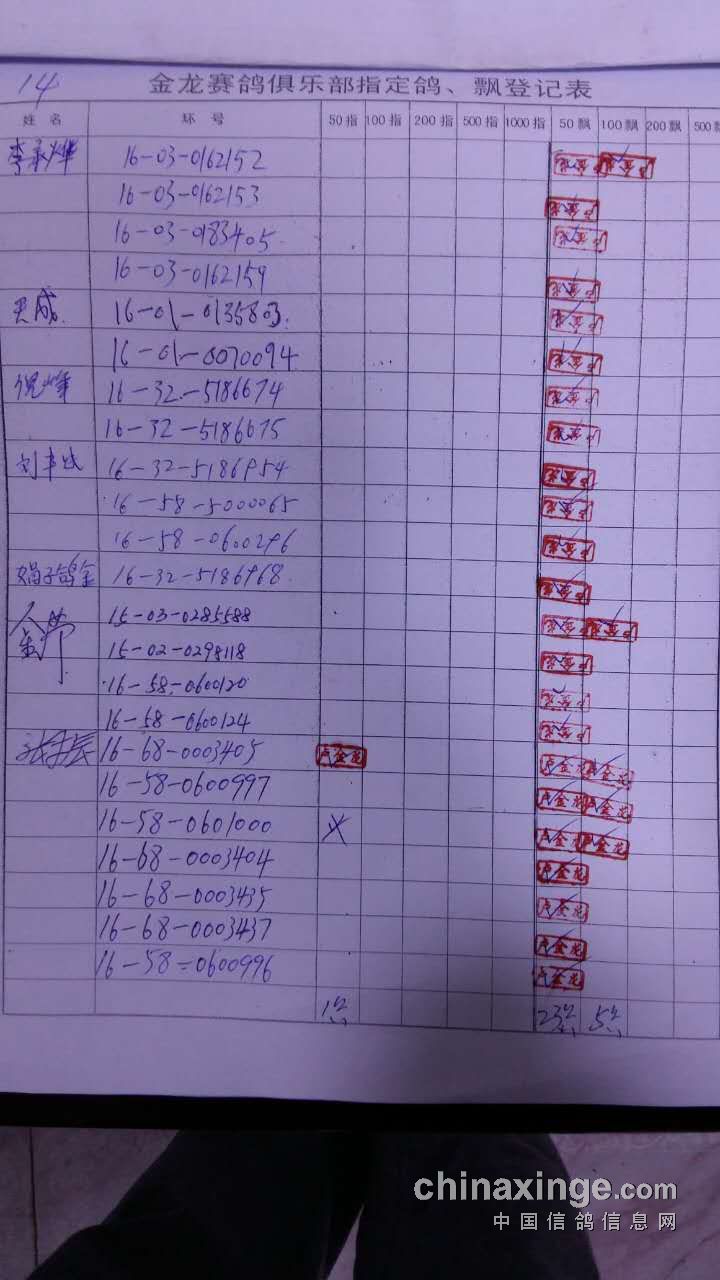 14
金龙赛鸽俱乐部指定鸽、飘登记表
姓名 环号 50指 100指 200指 500指 1000指 50飘 100飘 200飘 500飘
16-03-0162152
16-03-0162153
16-03-0183405
16-03-0162159
16-01-0135803
16-01-0070094
倪峰 16-32-5186674
16-32-5186675
16-32-5186954
16-58-5000065
16-58-0600296
娟子鸽舍 16-32-5186968
15-03-0285588
15-02-0298118
16-58-0600120
16-58-0600124
16-68-0003405 卢金龙 卢金龙 卢金龙
16-58-0600997 卢金龙 卢金龙
16-58-0601000 卢金龙 卢金龙
16-68-0003404 卢金龙
16-68-0003435 卢金龙
16-68-0003437 卢金龙
16-58-0600996 卢金龙
chinaxinge.com
中国信鸽信息网